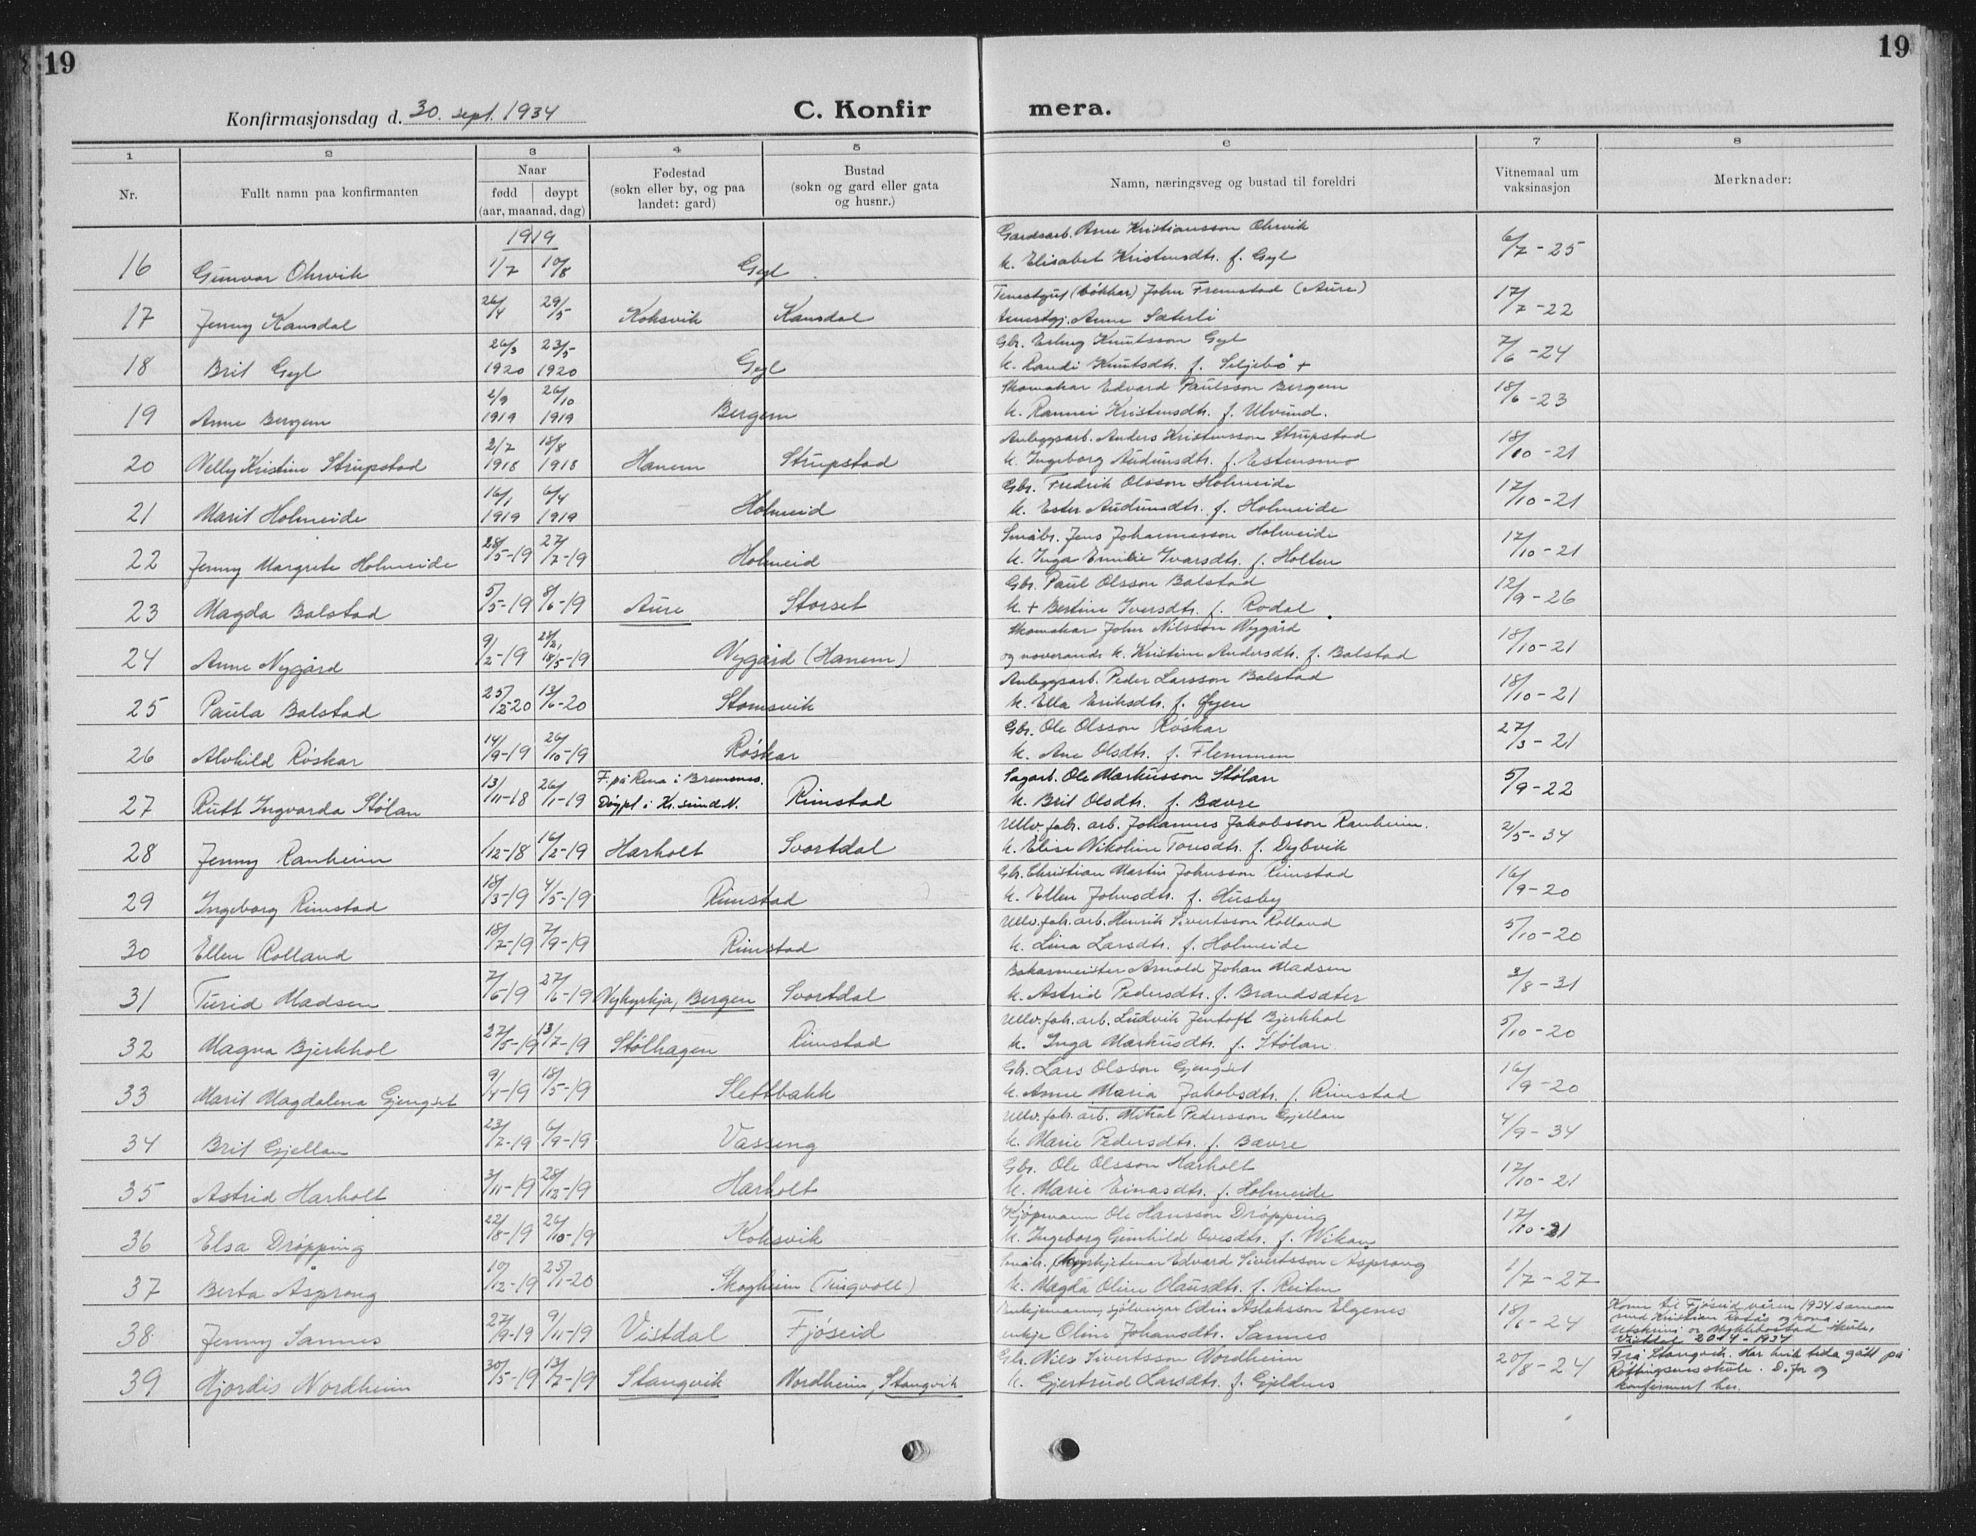 19
19
Konfirmasjonsdag d. 30. sept. 1934
C. Konfir
mera.
1 2 3 4 5 6 7 8
Nr.
Fullt namn paa konfirmanten
Naar
fødd døypt
(aar, maanad, dag)
Fødestad
(sokn eller by, og paa
landet: gard)
Bustad
(sokn og gard eller gata
og husnr.)
Namn, næringsveg og bustad til foreldri
Vitnemaal um
vaksinasjon
Merknader:
1919
Gardsarb. Arne Kristiansson Ohrvik
16 Gunvor Ohrvik 1/7 10/8 Gyl k. Elisabet Kristensdtr. f. Gyl 6/7 - 25
Tenestgut (bøkkar) John Fremstad (Aure)
17 Jenny Kansdal 26/4 29/5 Koksvik Kansdal tenestgj. Anne Sæterli 17/7 - 22
Gbr. Erling Knutsson Gyl
18 Brit Gyl 26/3 1920 23/5 1920 Gyl k. Randi Knutsdtr. f. Seljebø + 7/6 - 24
Skomakar Edvard Paulsson Bergem
19 Anne Bergem 2/9 1919 26/10 1919 Bergem k. Rannei Kristensdtr. f. Ulvund. 18/6 - 23
Anleggsarb. Anders Kristensson Strupstad
20 Nelly Kristine Strupstad 2/7 1918 18/8 1918 Hanem Strupstad k. Ingeborg Audunsdtr. f. Estensmo 18/10 - 21
Gbr. Fredrik Olsson Holmeide
21 Marit Holmeide 16/1 1919 6/4 1919 Holmeid k. Ester Audunsdtr. f. Holmeide 17/10 - 21
Småbr. Jens Johannesson Holmeide
22 Jenny Margrete Holmeide 28/5-19 27/7-19 Holmeid k. Inga Emilie Ivarsdtr. f. Holten 17/10 - 21
Gbr. Paul Olsson Bolstad
23 Magda Bolstad 5/5-19 8/6-19 Aure Storset k. + Bertine Iversdtr. f. Rodal 12/9 - 26
Skomakar John Nilsson Nygård
24 Anne Nygård 9/2-19 18/5-19 Nygård (Hanem) og noverande k. Kristine Andersdtr. f. Bolstad 18/10 - 21
Anleggsarb. Peder Larsson Bolstad
25 Paula Bolstad 25/2-20 13/6-20 Stomsvik k. Ella Eriksdtr. f. Øyen 18/10 - 21
Gbr. Ole Olsson Røskar
26 Alvhild Røskar 14/9-19 26/10-19 Røskar k. Ane Olsdtr. f. Flemmen 27/3 - 21
Sagarb. Ole Markusson Stølan
27 Rutt Ingvarda Stølan 13/11-18 26/1-19 F. på Rena i Bremsnes. Døypt i Kr.sund N. Rimstad k. Brit Olsdtr. f. Bævre 5/9 - 22
Ullv.fabr. arb. Johannes Jakobsson Ranheim.
28 Jenny Ranheim 1/12-18 16/2-19 Harholt Svortdal k. Elise Nikoline Tousdtr. f. Dybvik 2/5 - 34
Gbr. Christian Martin Johnsson Rimstad
29 Ingeborg Rimstad 18/3-19 4/5-19 Rimstad k. Ellen Johnsdtr. f. Husby 16/9 - 20
Ullv.fabr. arb. Henrik Sivertsson Rolland
30 Ellen Rolland 18/7-19 7/9-19 Rimstad k. Lina Larsdtr. f. Holmeide 5/10 - 20
Bakarmeister Arnold Johan Madsen
31 Turid Madsen 7/5-19 27/6-19 Nykyrkja, Bergen Svortdal k. Astrid Pedersdtr. f. Brandsæter 3/8 - 31
Ullv.fabr. arb. Ludvik Jentoft Bjerkhol
32 Magna Bjerkhol 27/5-19 13/7-19 Stølhagen Rimstad k. Inga Markusdtr. f. Stølan 5/10 - 20
Gbr. Lars Olsson Gjengset
33 Marit Magdalena Gjengset 9/4-19 18/5-19 Slettbakk k. Anne Maria Jakobsdtr. f. Rimstad 16/9 - 20
Ullv.fabr. arb. Mikal Pedersson Gjellan
34 Brit Gjellan 23/7-19 6/9-19 Vasseng k. Marie Pedersdtr. f. Bævre 4/9 - 34
Gbr. Ole Olsson Harholt
35 Astrid Harholt 3/11-19 28/12-19 Harholt k. Marie Einarsdtr. f. Holmeide 17/10 - 21
Kjøpmann Ole Hansson Drøpping
36 Elsa Drøpping 22/8-19 26/10-19 Koksvik k. Ingeborg Gunhild Ovesdtr. f. Wikan 17/10 - 21
Småbr. Edvard Sivertsson Asprong
37 Berta Asprong 10/12-19 25/1-20 Skogheim (Tingvoll) k. Magda Oline Olausdtr. f. Reiten 1/7 - 27
Enkjemann, sjølveigar Edvin Aslaksson Elgenes
38 Jenny Sannes 27/9-19 9/11-19 Vistdal Fjøseid enkje Oline Johansdtr. Sannes 18/6 - 24
Kom til Fjøseid våren 1934 saman
med Kristian Røtås og kona
Utskriven or Myklebostad skule,
Vistdal 20.4 - 1934
Gbr. Nils Sivertsson Nordheim
39 Hjordis Nordheim 30/5-19 13/7-19 Stangvik Nordheim, Stangvik k. Gjertrud Larsdtr. f. Gjeldnes 20/8 - 24
Frå Stangvik. Har heile tida gått på
Røttingsnes skule. D. for og
konfirmert her.